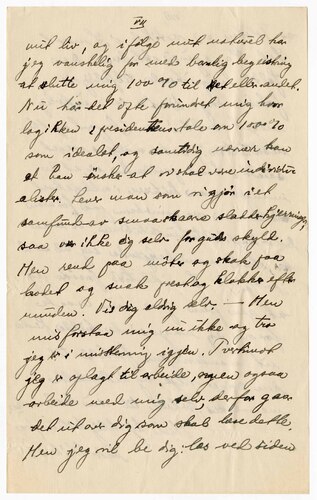 VII
mit liv, og ifølge mit naturel har
jeg vanskelig for med barnlig begeistring
at slutte mig 100% til det eller andet.
Nu har det ofte forundret mig hvor
logikken i presidentens tale om 100%
som idealet, og samtidig nævner han
at han ønsker at vi skal være individu
alister. Lever man som vi gjør i et
samfund av smaaskaarne
saa vær ikke dig selv for guds skyld.
Men rend paa møter og skak paa
hodet og snak prestog klokker efter
munden. Vis dig aldrig selv. — Men
misforstaa mig nu ikke og tro
jeg er i mistemning igjen. Tvertimot
jeg er oplagt til arbeide, og en ogsaa
arbeide med mig selv, derfor gaar
det ut over dig som skal læse dette,
Men jeg vil be dig: læs ved siden